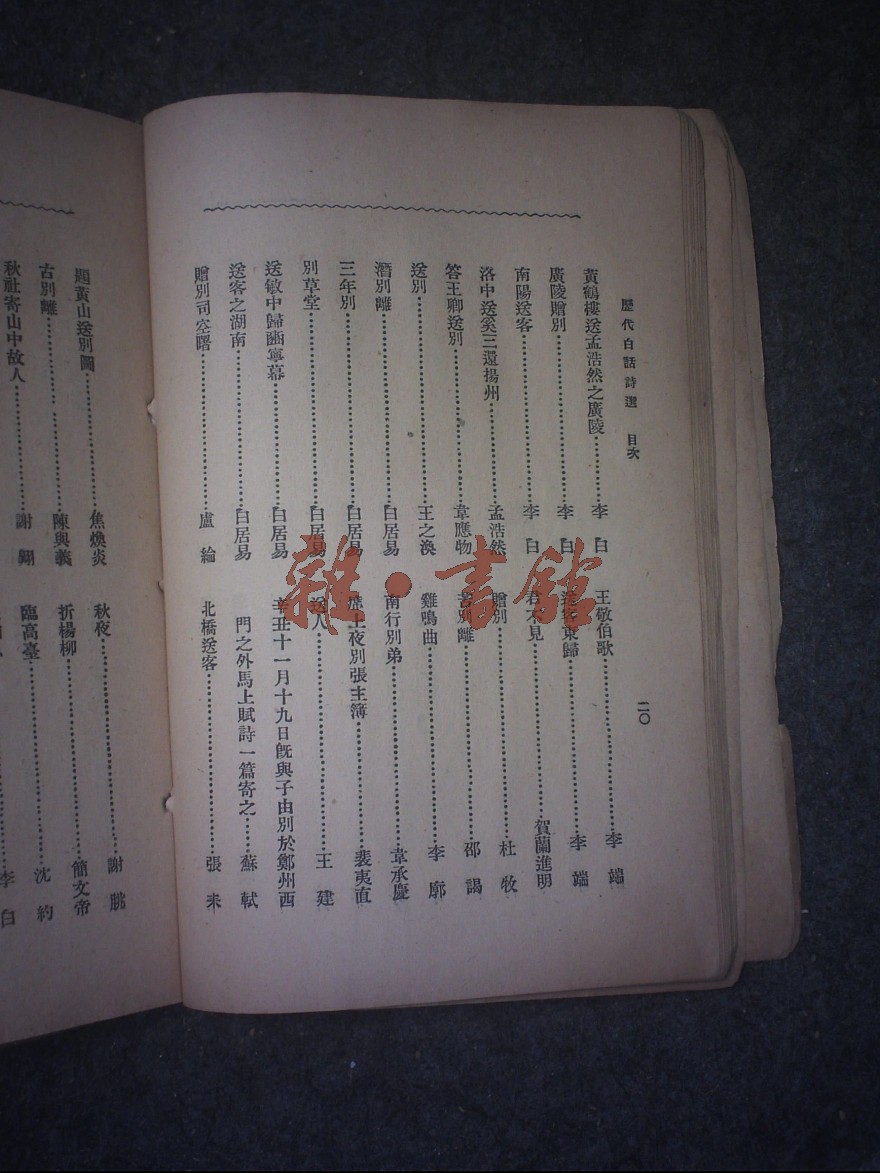 歷代白話詩選 目次
二〇
黃鶴樓送孟浩然之廣陵……李白
廣陵贈別……李白
南陽送客……李白
洛中送奚三還揚州……孟浩然
答王卿送別……韋應物
送別……王之渙
潛別離……白居易
三年別……白居易
別草堂……白居易
送敏中歸豳寧幕……白居易
送客之湖南……白居易
贈別司空曙……盧綸
王敬伯歌……李端
送客東歸……李端
君不見……賀蘭進明
贈別……杜牧
苦別離……邵謁
雞鳴曲……李廓
南行別弟……韋承慶
席上夜別張主簿……裴夷直
送人……王建
辛丑十一月十九日既與子由別於鄭州西
門之外馬上賦詩一篇寄之……蘇軾
北橋送客……張耒
題黃山送別圖……焦煥炎
古別離……陳興義
秋社寄山中故人……謝翱
秋夜……謝朓
折楊柳……簡文帝
臨高臺……沈約
李白
雜·書館